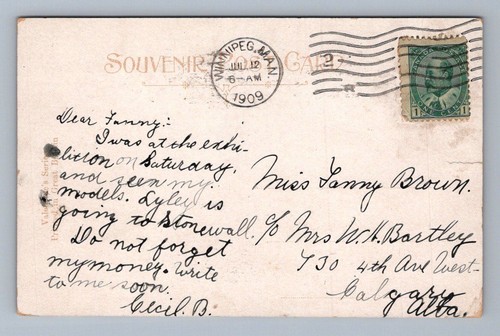 SOUVENIR POST CARD
WINNIPEG, MAN.
JUL 12
6-AM
1909
2
Dear Fanny:
I was at the exhi-
bition on Saturday,
and seen my
models. Lyle is
going to Stonewall.
Do not forget
my money. Write
to me soon.
Cecil B.
Miss Fanny Brown.
c/o Mrs W. H. Bartley
730 4th Ave West
Calgary
Alba.
1 1